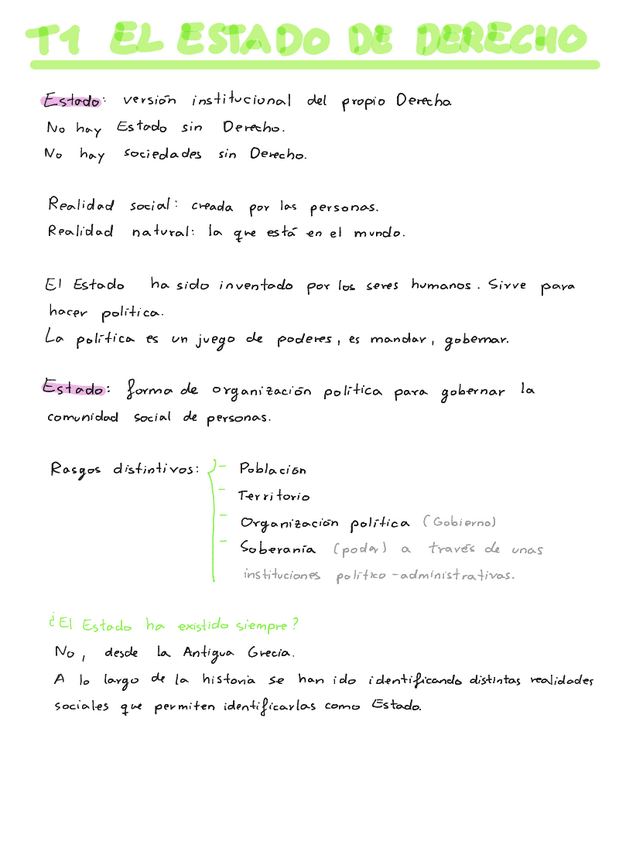 T1 EL ESTADO DE DERECHO
Estado: versión institucional del propio Derecho
No hay Estado sin Derecho.
No hay sociedades sin Derecho.
Realidad social: creada por las personas.
Realidad natural: la que está en el mundo.
El Estado ha sido inventado por los seres humanos. Sirve para
hacer política.
La política es un juego de poderes, es mandar, gobernar.
Estado: forma de organización política para gobernar la
comunidad social de personas.
Rasgos distintivos: - Población
- Territorio
- Organización política (Gobierno)
- Soberanía (poder) a través de unas
instituciones político-administrativas.
¿El Estado ha existido siempre?
No, desde la Antigua Grecia.
A lo largo de la historia se han ido identificando distintas realidades
sociales que permiten identificarlas como Estado.